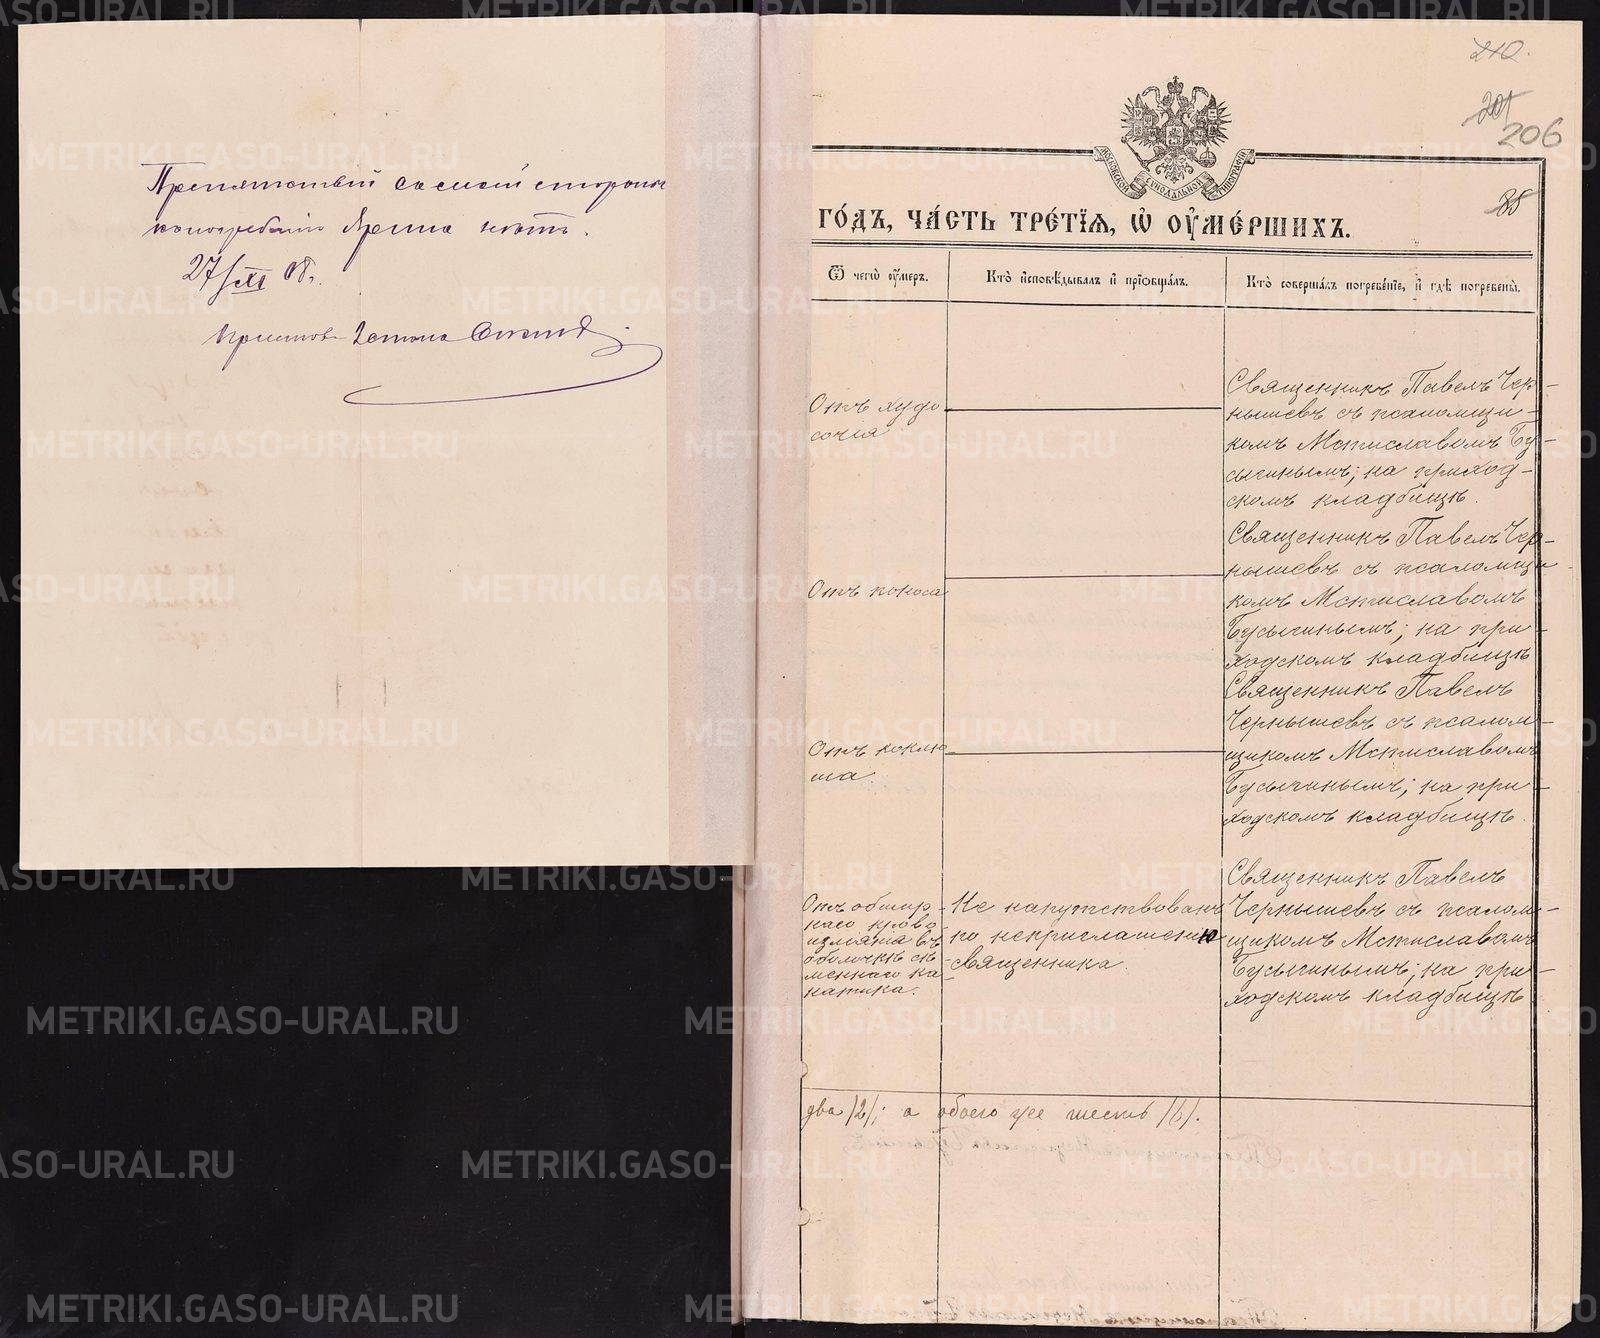 Препятствий съ моей стороны
къ погребенію Ярина нѣтъ.
27/XI 08 г.
Приставъ 2 стана
210.
201
206
85
МОСКОВСКОЙ СѴНОДАЛЬНОЙ ТИПОГРАФІИ
ГО́ДЪ, ЧА́СТЬ ТРЕ́ТІѦ, Ѡ҆ ОУ҆МЕ́РШИХЪ.
Ѿ чегѡ̀ оу҆́меръ.
Кто̀ и҆сповѣ́дывалъ и҆ прїѡбща́лъ.
Кто̀ соверша́лъ погребе́нїе, и҆ гдѣ̀ погребены̀.
Отъ худо
сочія
Священникъ Павелъ Чер-
нышевъ съ псаломщи-
комъ Мстиславомъ Бу-
сыгинымъ; на приход-
скомъ кладбищѣ.
Отъ поноса
Священникъ Павелъ Чер-
нышевъ съ псаломщи-
комъ Мстиславомъ
Бусыгинымъ; на при-
ходскомъ кладбищѣ
Отъ коклю-
ша.
Священникъ Павелъ
Чернышевъ съ псалом-
щикомъ Мстиславомъ
Бусыгинымъ; на при-
ходскомъ кладбищѣ.
Отъ обшир-
наго крово
изліянія въ
оболочкѣ сѣ-
меннаго ка-
натика.
Не напутствованъ
по неприглашенію
священника.
Священникъ Павелъ
Чернышевъ съ псалом-
щикомъ Мстиславомъ
Бусыгинымъ; на при-
ходскомъ кладбищѣ
два /2/; а обоего же шесть /6/.
METRIKI.GASO-URAL.RU